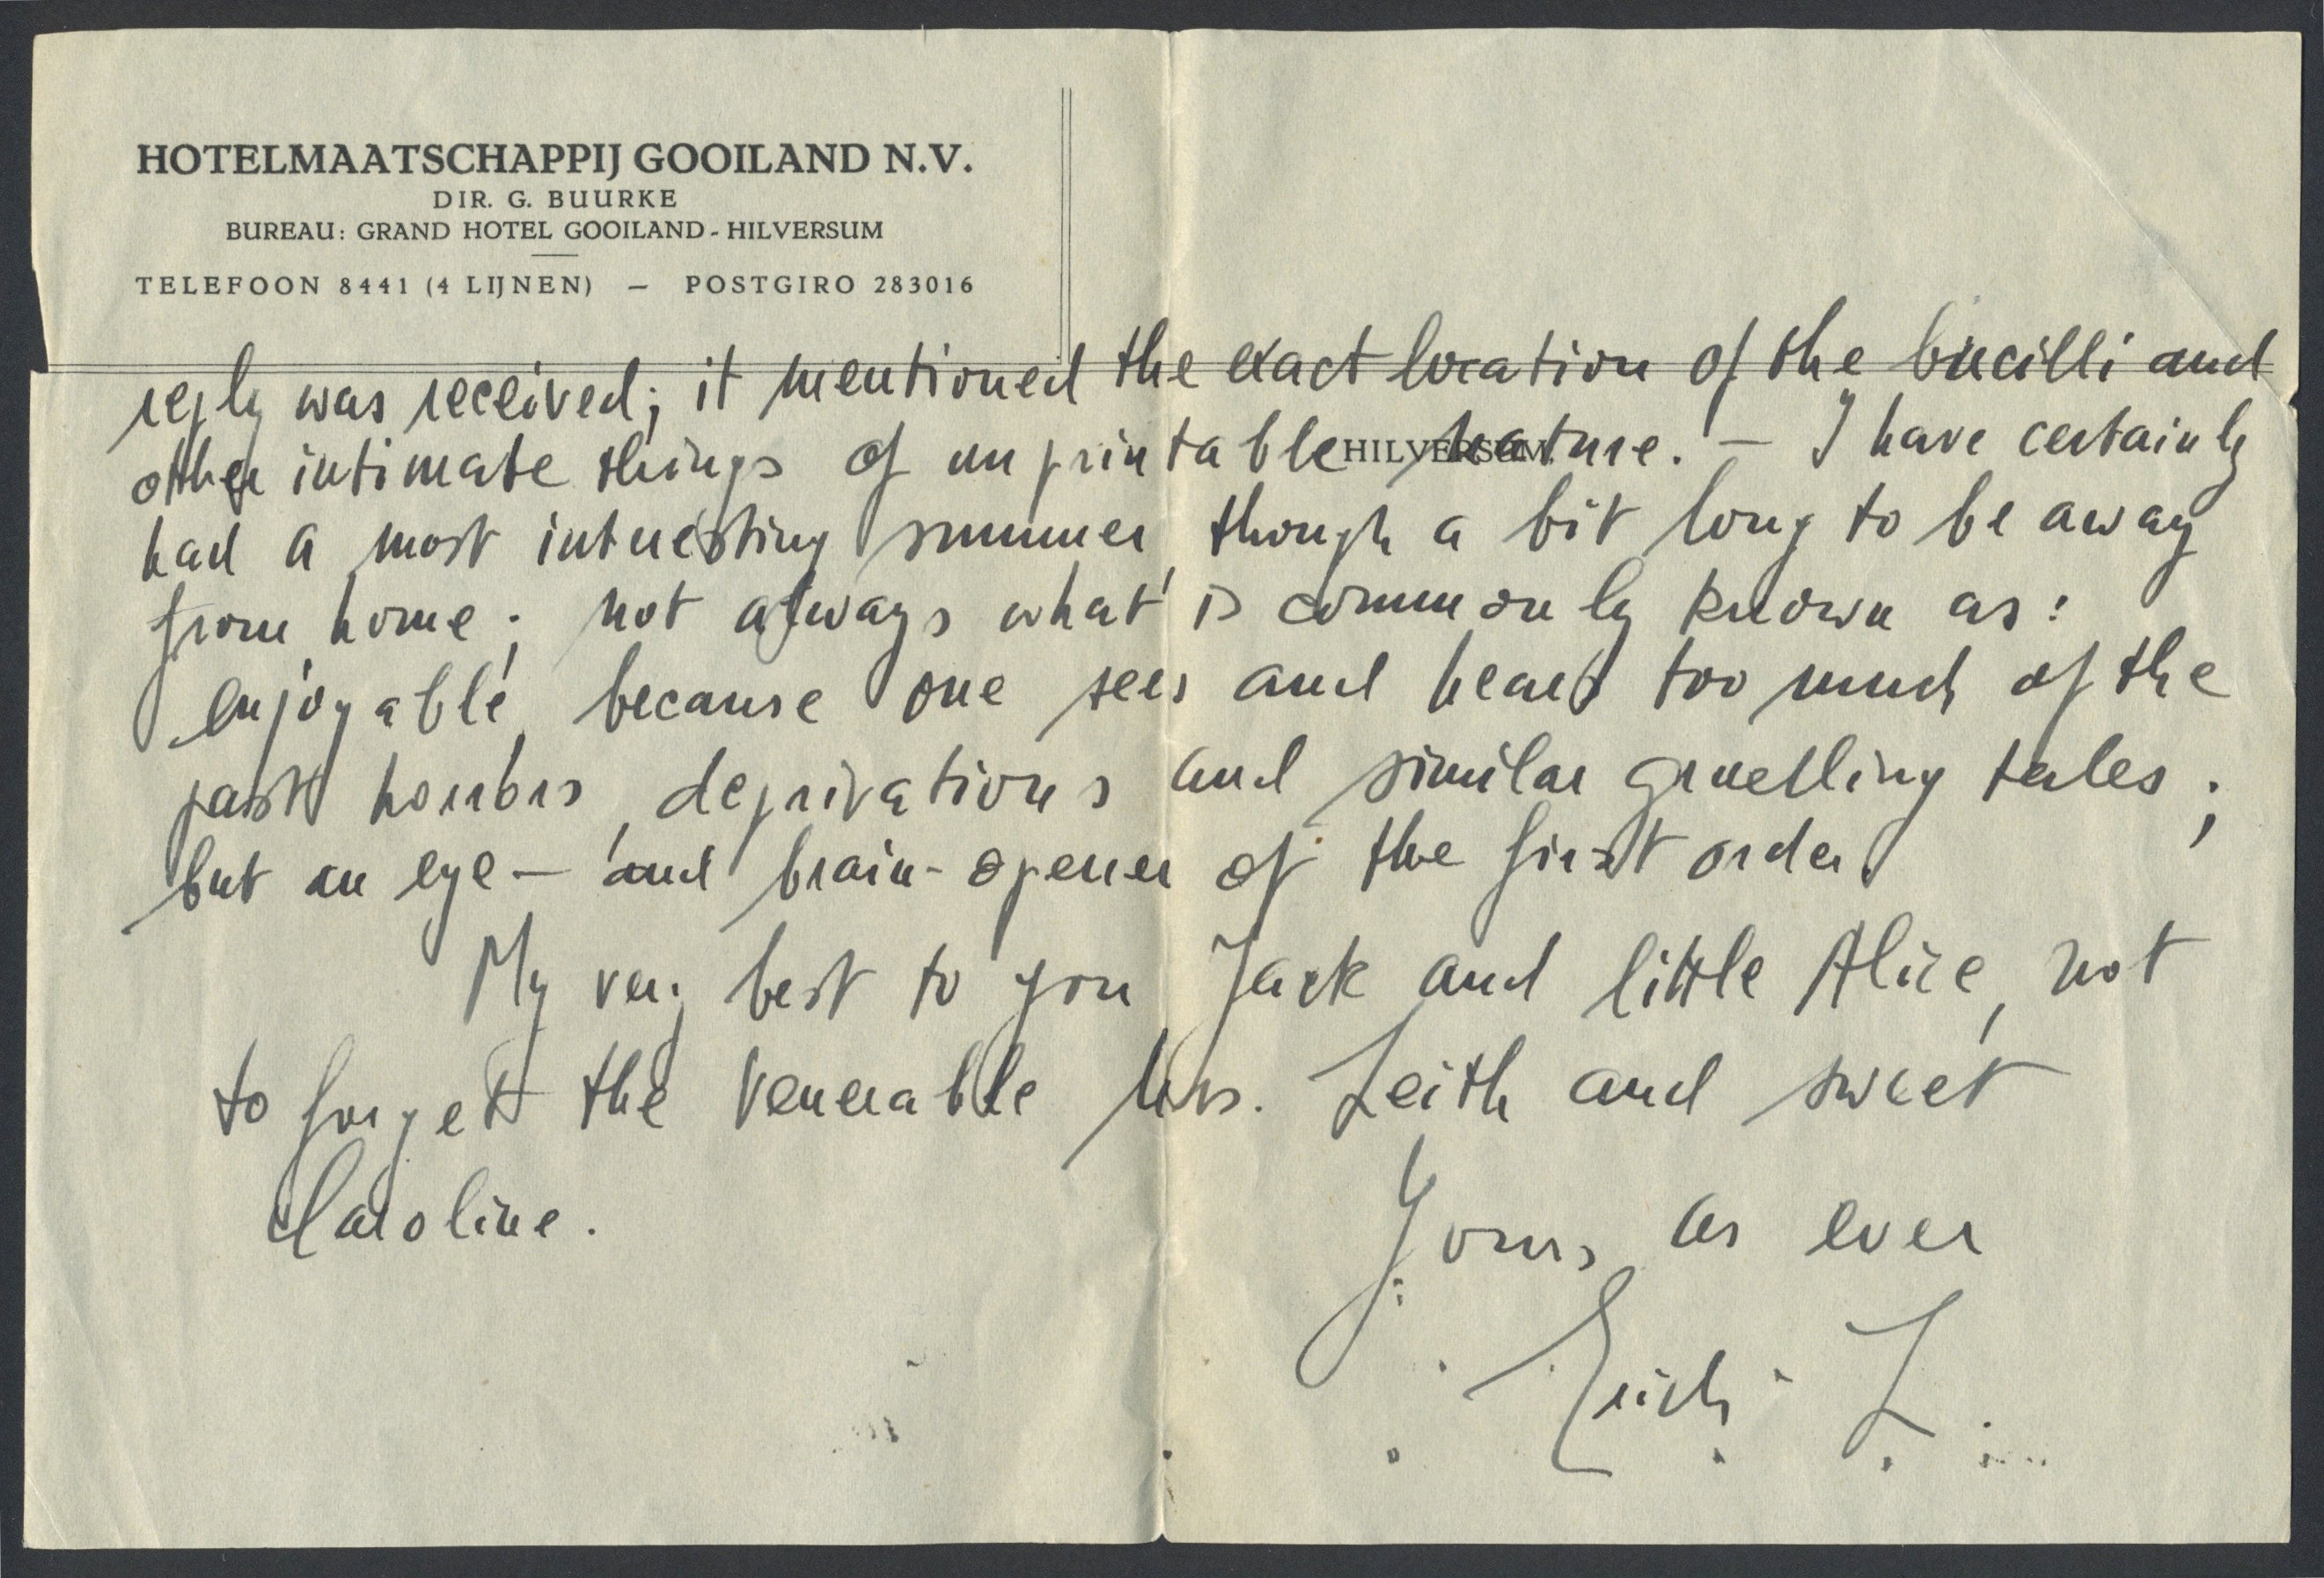 HOTELMAATSCHAPPIJ GOOILAND N.V.
DIR. G. BUURKE
BUREAU: GRAND HOTEL GOOILAND - HILVERSUM
TELEFOON 8441 (4 LIJNEN) — POSTGIRO 283016
reply was received; it mentioned the exact location of the bacilli and
other intimate things of unprintable nature. — I have certainly
HILVERSUM,
had a most interesting summer, though a bit long to be away
from home; not always what is commonly known as:
enjoyable, because one sees and hears too much of the
past horrors, deprivations and similar gruelling tales;
but an eye- and brain-opener of the first order.
My very best to you Jack and little Alice, not
to forget the venerable Mrs. Leith and sweet
Caroline.
Yours as ever
Erich L.